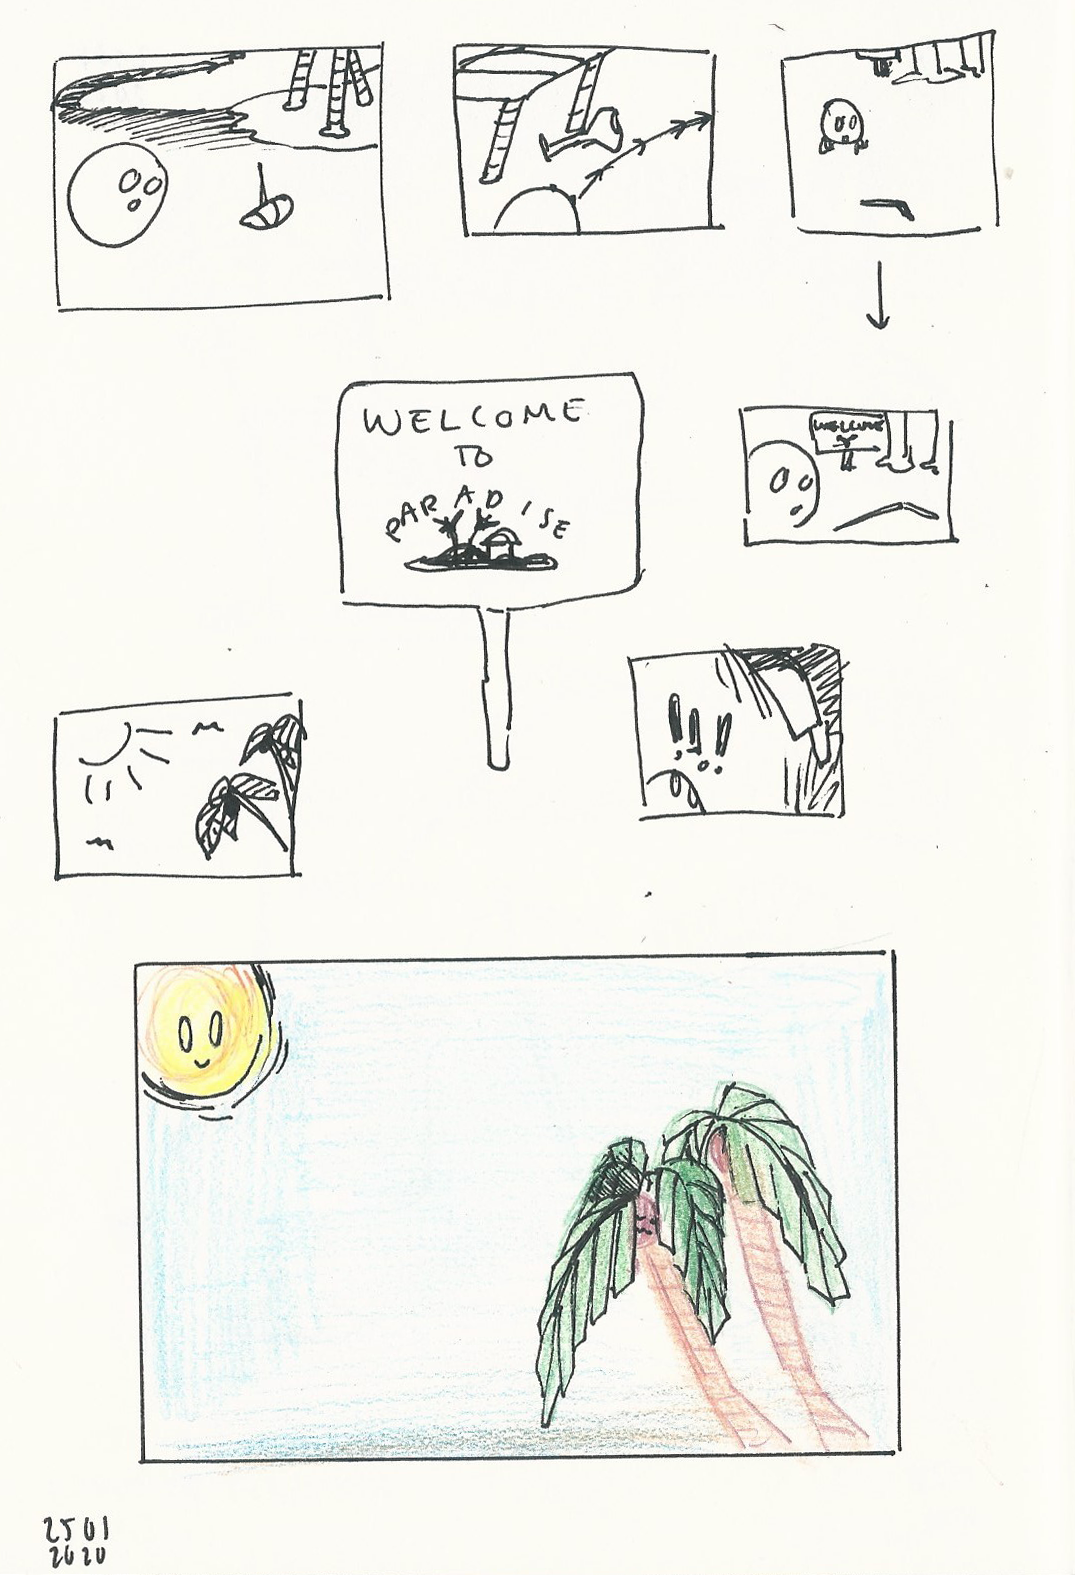 WELCOME
TO
PARADISE
WELCOME
!!!
2501
2020